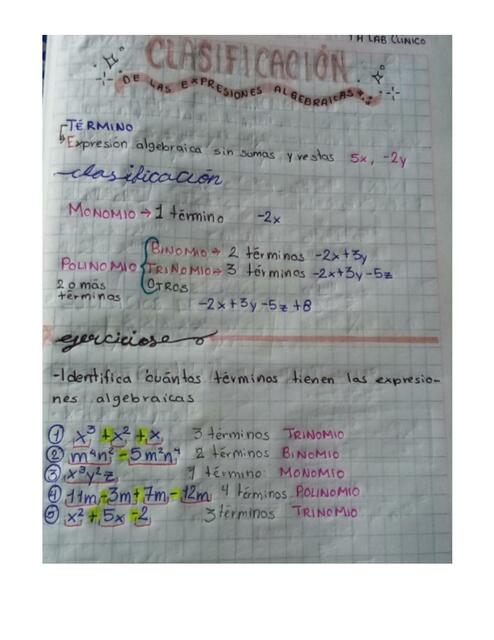 1H LAB CLINICO
CLASIFICACIÓN
DE LAS EXPRESIONES ALGEBRAICAS
TÉRMINO
Expresión algebraica sin sumas y restas 5x, -2y
clasificación
MONOMIO → 1 término -2x
BINOMIO → 2 términos -2x+3y
POLINOMIO TRINOMIO → 3 términos -2x+3y-5z
2 o más OTROS
términos -2x+3y-5z+8
ejercicios
-Identifica cuántos términos tienen las expresio-
nes algebraicas
① x³+x²+x 3 términos TRINOMIO
② m⁴n²-5m²n⁴ 2 términos BINOMIO
③ x³y²z 1 término: MONOMIO
④ 11m-3m+7m-12m 4 términos POLINOMIO
⑤ x²+5x-2 3 términos TRINOMIO